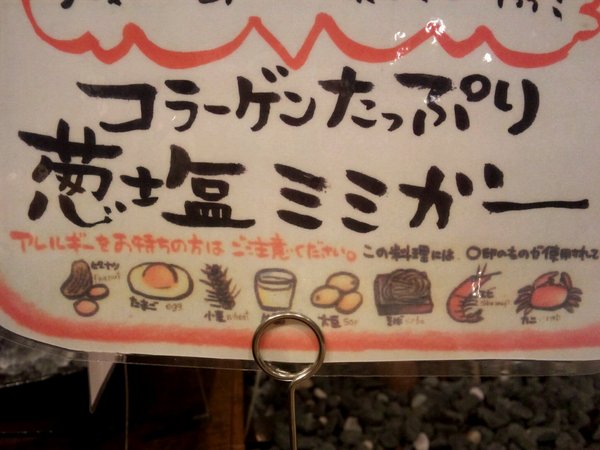 コラーゲンたっぷり
葱塩ミミガー
アレルギーをお持ちの方は ご注意ください。この料理には、○印のものが使用されて
ピーナッツ たまご egg 小麦 wheat 大豆 Soy そば えび Shrimp カニ
Peanut